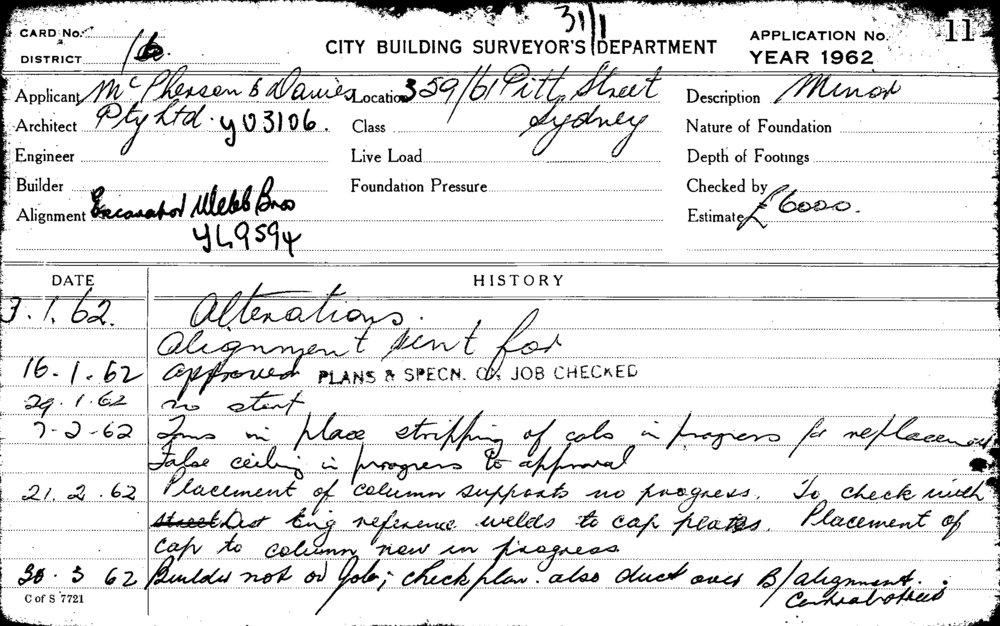 31/1
CARD No.
DISTRICT 16
CITY BUILDING SURVEYOR'S DEPARTMENT
APPLICATION No. 11
YEAR 1962
Applicant McPherson & Davies Location 359/61 Pitt Street Description Minor
Architect Pty Ltd. YU3106. Class Sydney Nature of Foundation
Engineer Live Load Depth of Footings
Builder Foundation Pressure Checked by
Alignment Excavator Webb Bros Estimate £6000.
YL9594
DATE HISTORY
3.1.62. Alterations.
Alignment sent for
16.1.62 approved PLANS & SPECN. ON JOB CHECKED
29.1.62 no start
7-2-62 in place stripping of cols in progress for replacement
False ceiling in progress to approval
21.2.62 Placement of column supports no progress. To check with
street Dist Eng reference welds to cap plates. Placement of
cap to column now in progress
30.3 62 Builder not on Job; check plan. also duct over B/alignment.
C of S 7721